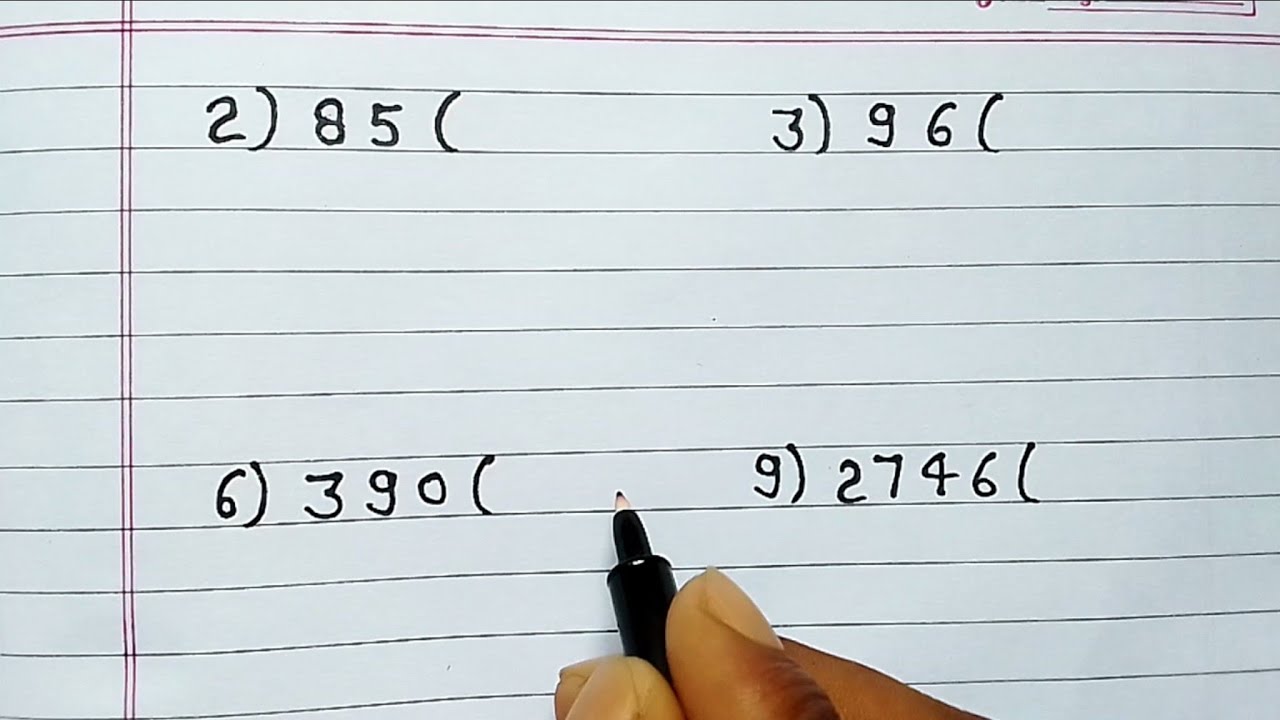 2) 85 ( 3) 96 (
6) 390 ( 9) 2746 (